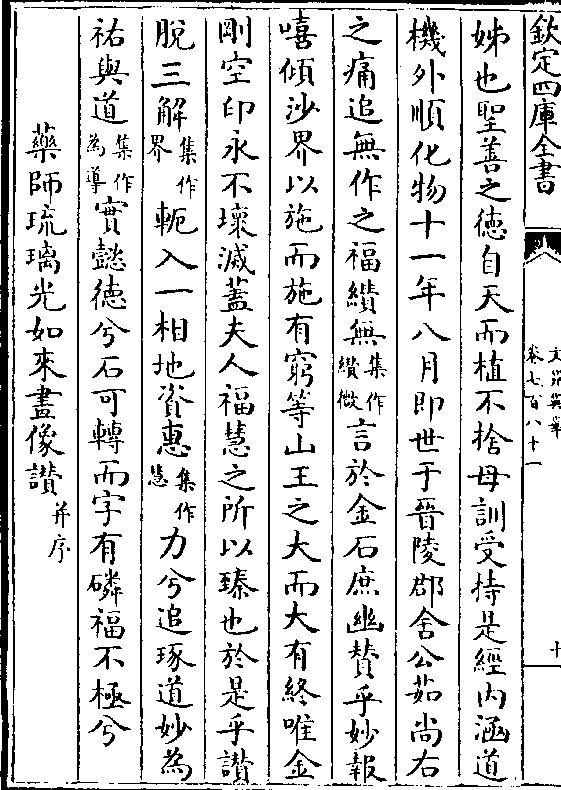 欽定四庫全書
文苑英華
卷七百八十一
十
姊也聖善之德自天而植不捨母訓受持是經内涵道
機外順化物十一年八月即世于晉陵郡舍公茹尚右
之痛追無作之福纘無集作纘微言於金石庶幽贊乎妙報
嘻傾沙界以施而施有窮等山王之大而大有終唯金
剛空印永不壞滅蓋夫人福慧之所以臻也於是乎讃
脱三解集作界軛入一相地資惠集作慧力兮追琢道妙為
祐與道集作為導實懿德兮石可轉而字有磷福不極兮
藥師琉璃光如來畫像讃并序